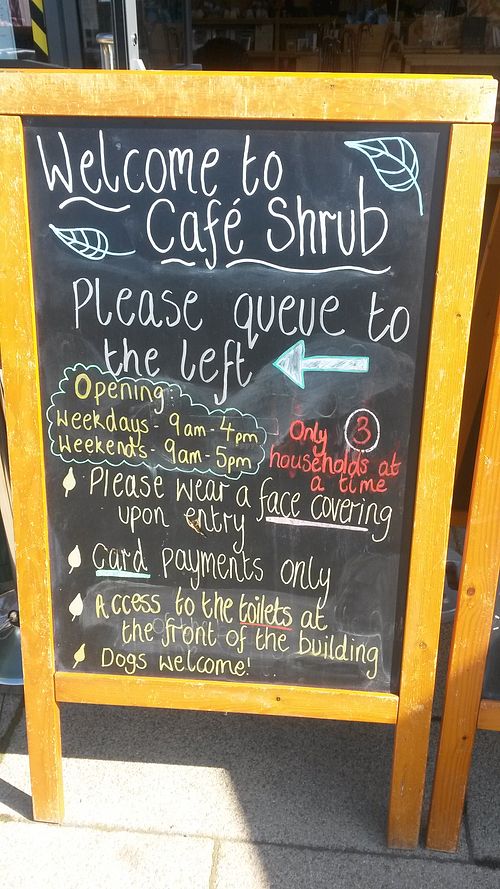 Welcome to
Café Shrub
Please queue to
the left
Opening:
Weekdays - 9am - 4pm
Weekends - 9am - 5pm
Only 3
households at
a time
Please wear a face covering
upon entry
Card payments only
Access to the toilets at
the front of the building
Dogs welcome!